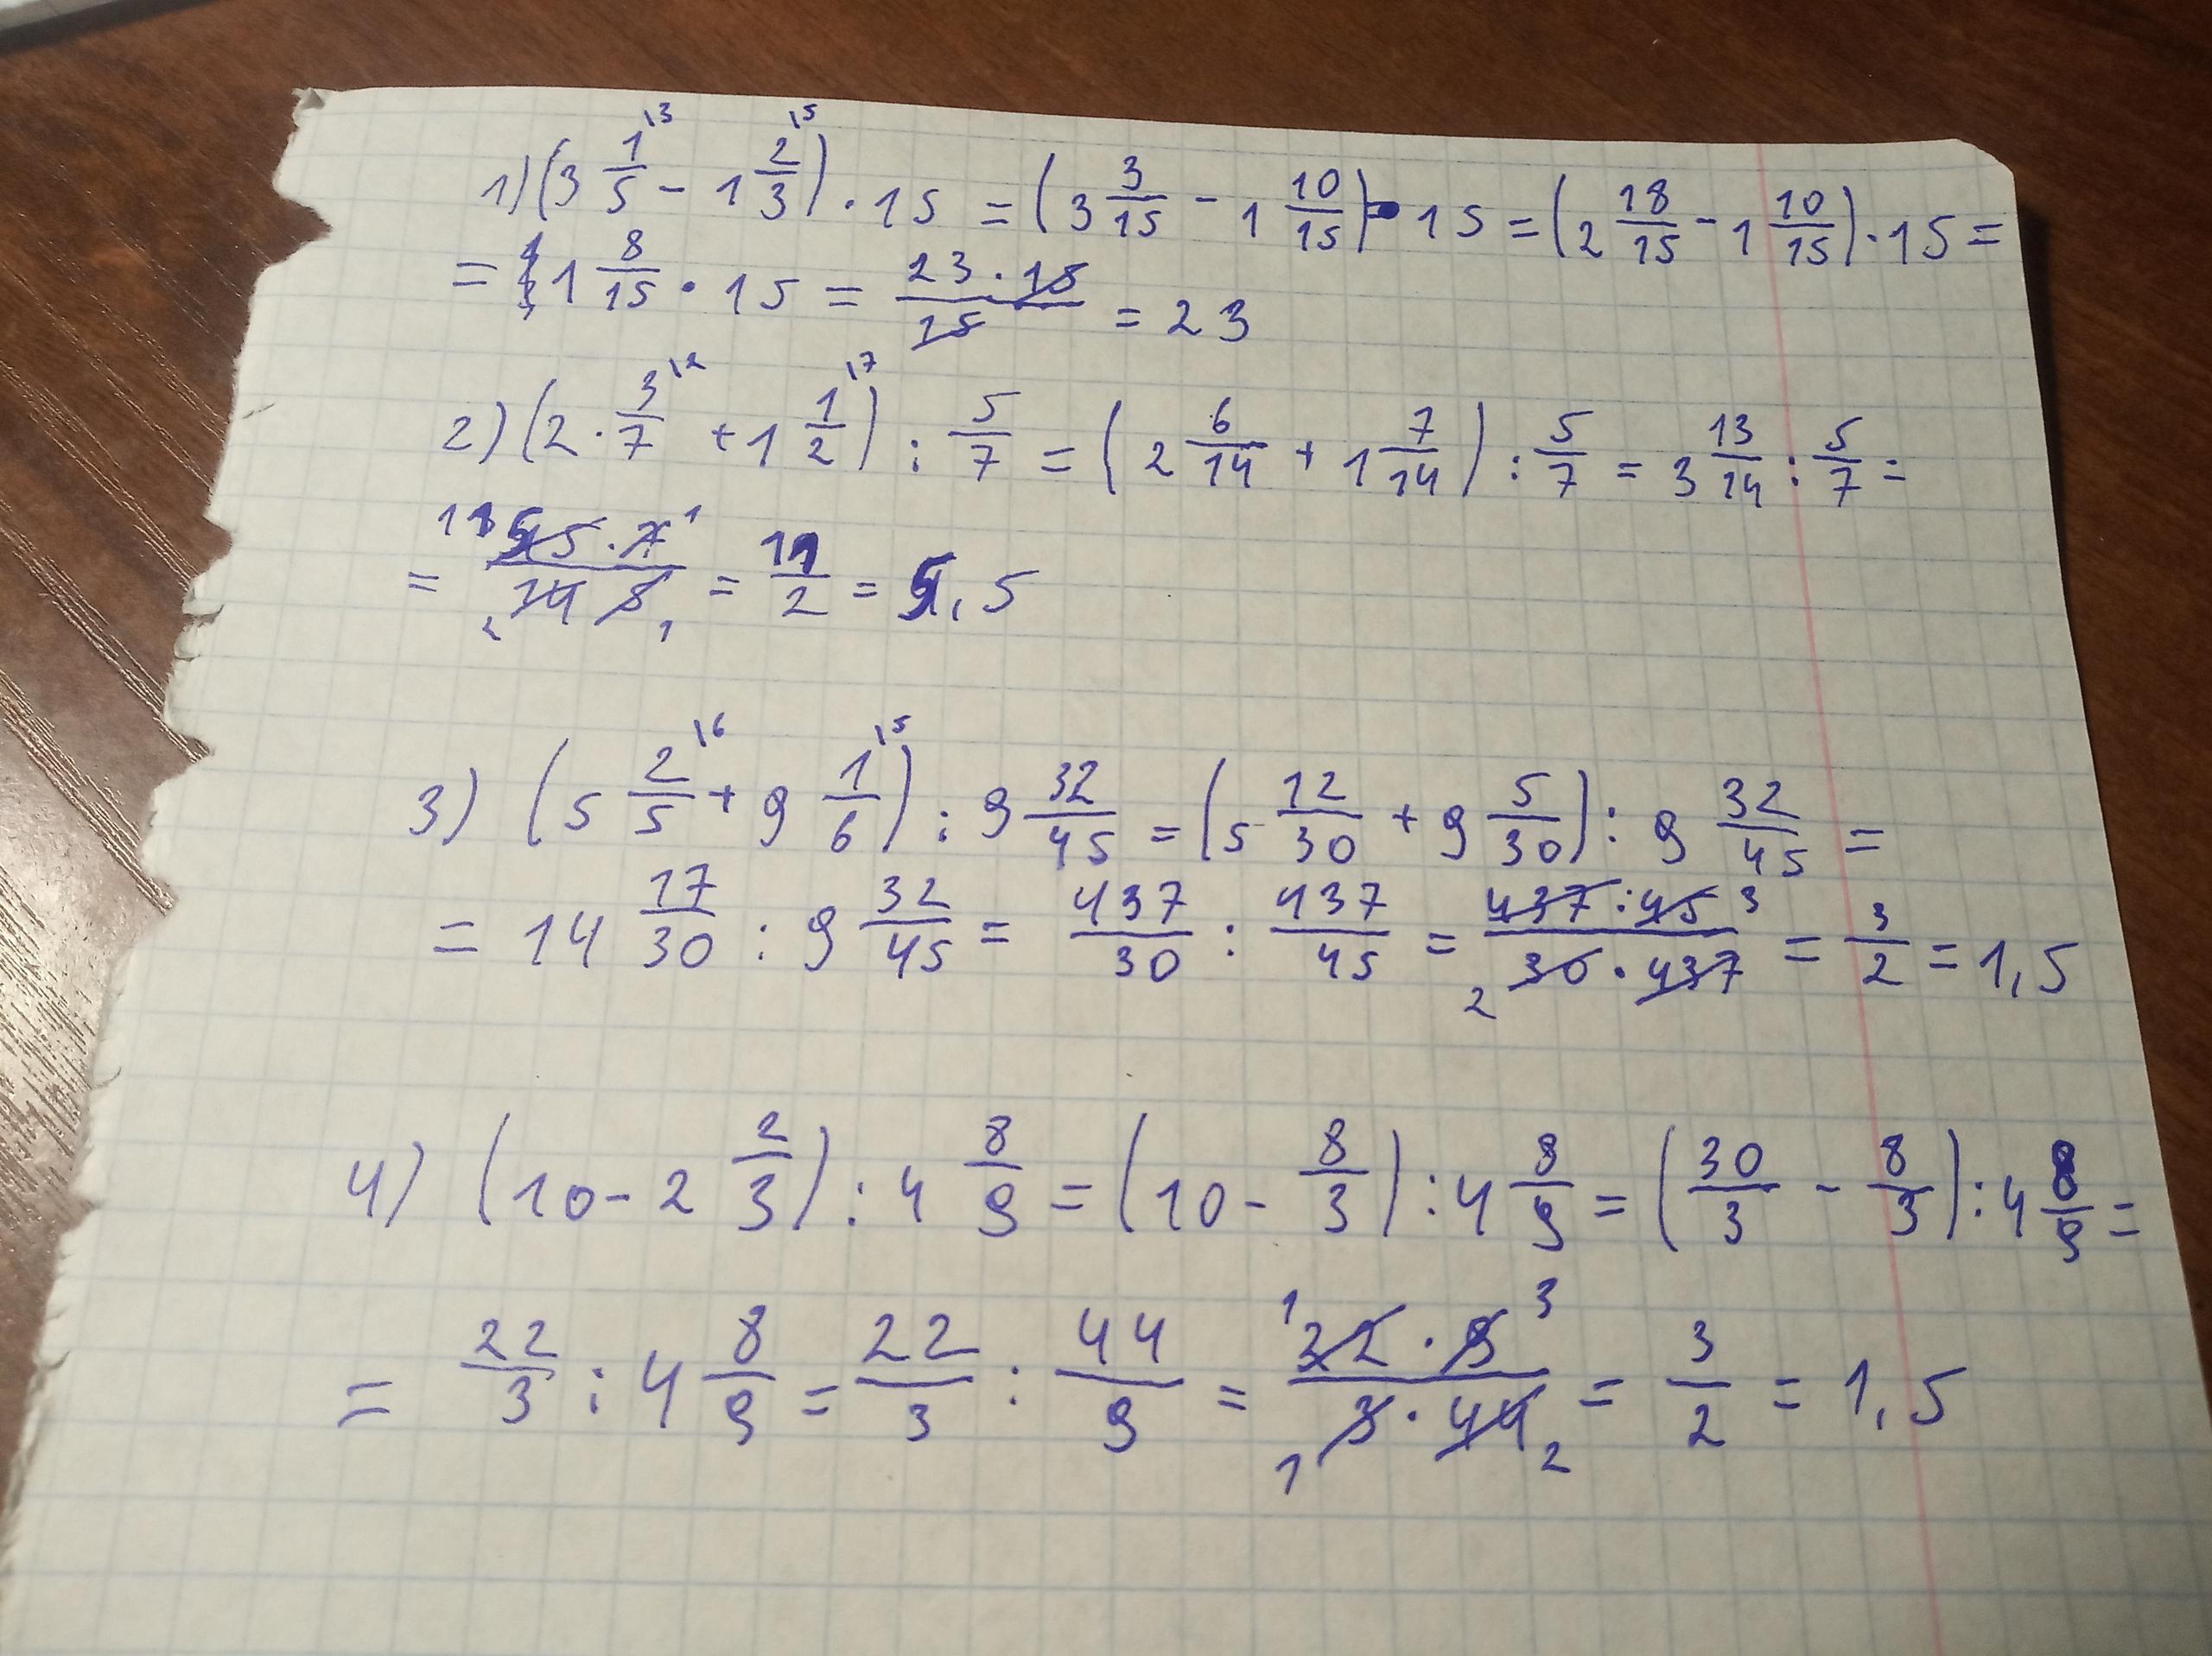 1) (3 1/5 \3 - 1 2/3 \5) · 15 = (3 3/15 - 1 10/15) · 15 = (2 18/15 - 1 10/15) · 15 =
= 1 8/15 · 15 = 23 · 15/15 = 23
2) (2 · 3/7 \2 + 1 1/2 \7) : 5/7 = (2 6/14 + 1 7/14) : 5/7 = 3 13/14 : 5/7 =
= 11 55 · 7 1/2 14 5 1 = 11/2 = 5,5
3) (5 2/5 \6 + 9 1/6 \5) : 9 32/45 = (5 12/30 + 9 5/30) : 9 32/45 =
= 14 17/30 : 9 32/45 = 437/30 : 437/45 = 437 : 45 3/2 30 · 437 = 3/2 = 1,5
4) (10 - 2 2/3) : 4 8/9 = (10 - 8/3) : 4 8/9 = (30/3 - 8/3) : 4 8/9 =
= 22/3 : 4 8/9 = 22/3 : 44/9 = 1 22 · 9 3/1 3 · 44 2 = 3/2 = 1,5